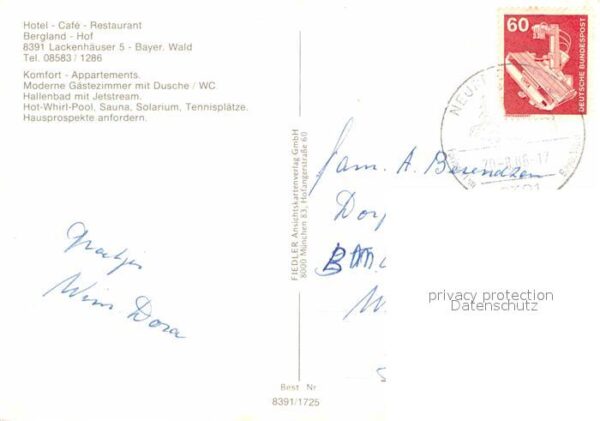 Hotel - Café - Restaurant
Bergland - Hof
8391 Lackenhäuser 5 - Bayer. Wald
Tel. 08583 / 1286
Komfort - Appartements.
Moderne Gästezimmer mit Dusche / WC.
Hallenbad mit Jetstream.
Hot-Whirl-Pool, Sauna, Solarium, Tennisplätze.
Hausprospekte anfordern.
Groetjes
Wim. Dora
FIEDLER Ansichtskartenverlag GmbH
8000 München 83, Hofangerstraße 60
Best Nr
8391/1725
60
DEUTSCHE BUNDESPOST
Fam. A. Berendzen
Dorp
privacy protection
Datenschutz